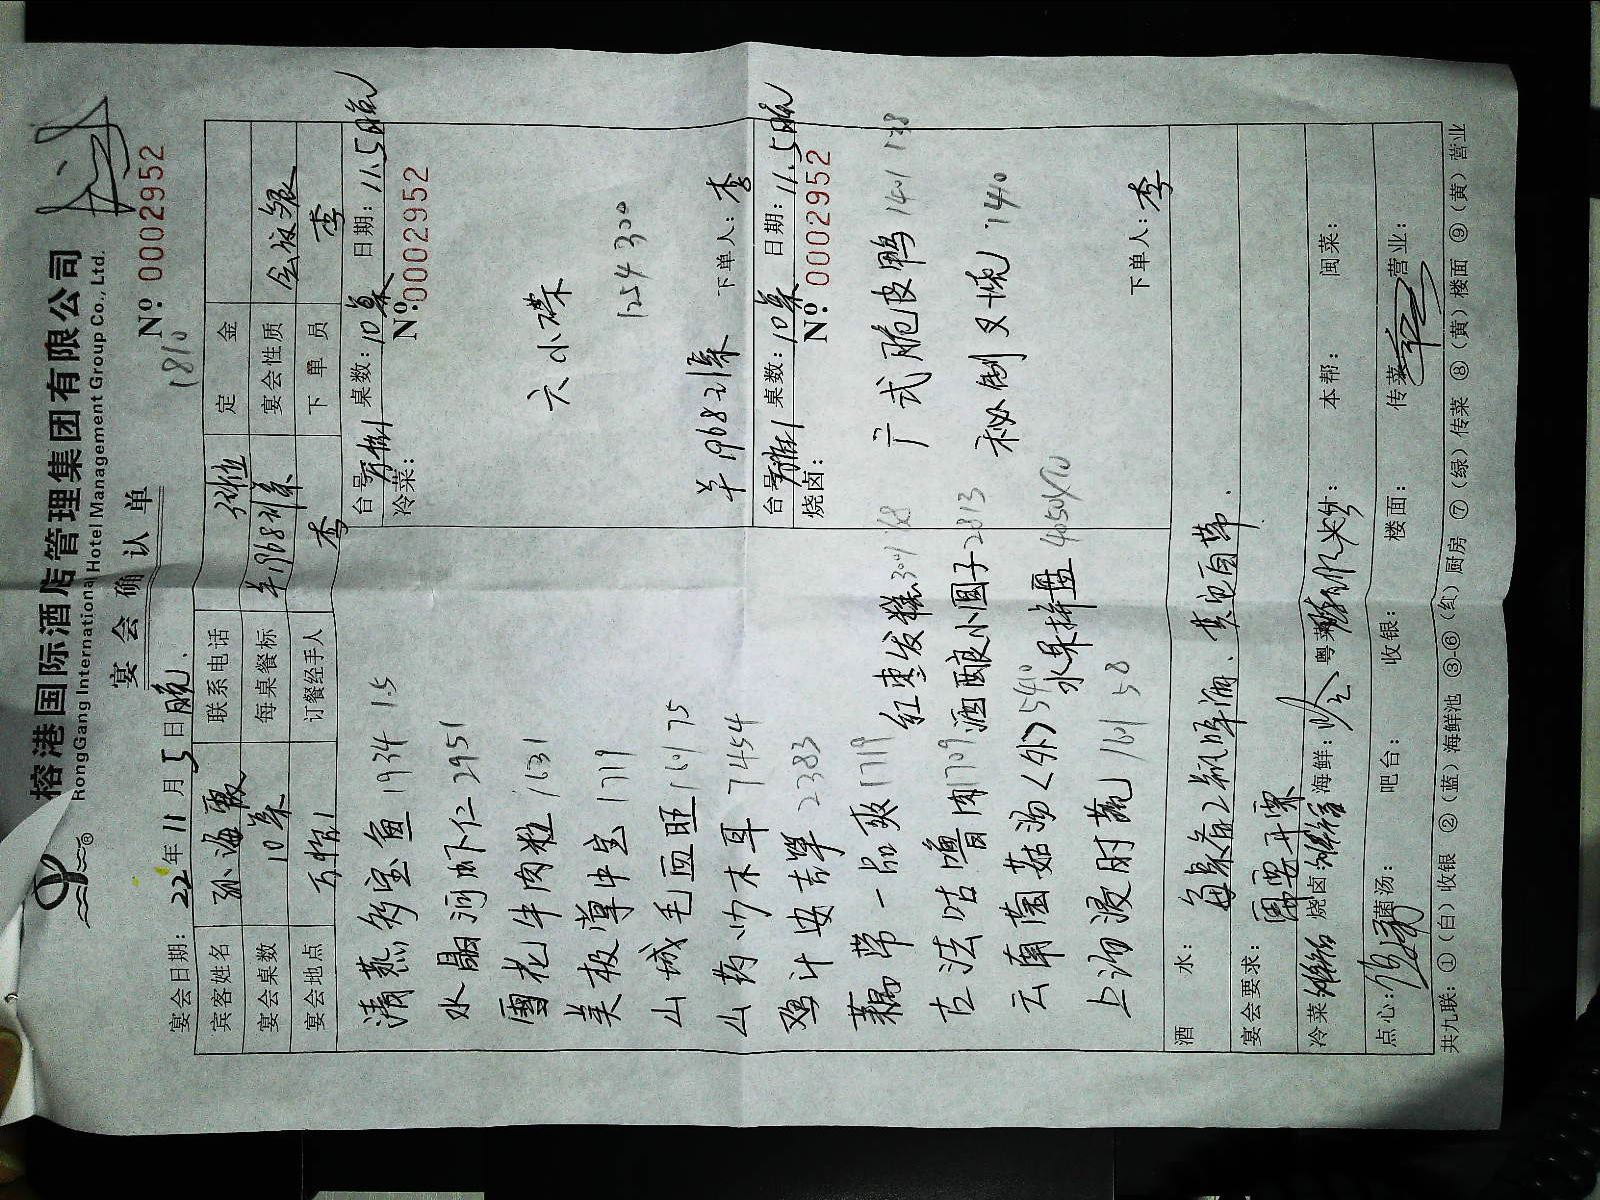 榕港国际酒店管理集团有限公司
RongGang International Hotel Management Group Co., Ltd.
宴会确认单
宴会日期: 22年11月5日晚. Nº 0002952
1810
宾客姓名 孙海霞 联系电话 定金
宴会桌数 10桌 每桌餐标 羊1968对桌 宴会性质
宴会地点 联系 订餐经手人 李 下单员 李
台号 桌数: 10桌 日期: 11.5晚
冷菜: Nº 0002952
六小碟
1254 300
羊1968对桌 下单人: 李
台号 桌数: 10桌 日期: 11.5晚
烧卤: Nº 0002952
广式脆皮鸭 1401 138
秘制叉烧 1440
下单人: 李
清蒸多宝鱼 1934 1.5
水晶河虾仁 2951
雪花牛肉粒 1631
美极草虫 1719
山城毛血旺 1601 75
山药炒木耳 7454
鸡汁安吉笋 2383
藕带一品爽 1719 红枣发糕 3001 168
古法咕噜肉 1709 酒酿小圆子 2813
云南菌菇汤〈外〉 5410 水果拼盘 4050X10
上汤浸时蔬 1601 58
酒水: 每桌备2瓶啤酒、
宴会要求: 需要开票
冷菜: 烧卤: 海鲜: 粤菜: 本帮: 闽菜:
点心: 蒲汤: 吧台: 收银: 楼面: 传菜: 营业:
共九联: ①(白)收银 ②(蓝)海鲜池 ③-⑥(红)厨房 ⑦(绿)传菜 ⑧(黄)楼面 ⑨(黄)营业